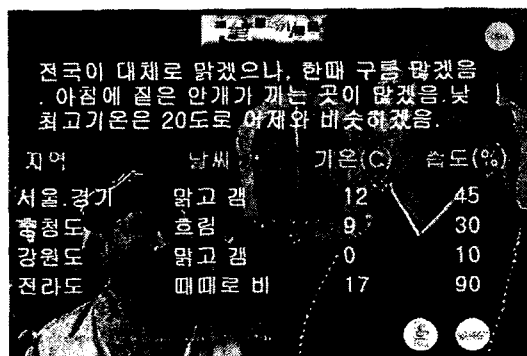 전국이 대체로 맑겠으나, 한때 구름 많겠음
. 아침에 짙은 안개가 끼는 곳이 많겠음.낮
최고기온은 20도로 어제와 비슷하겠음.
지역 날씨 기온(C) 습도(%)
서울.경기 맑고 갬 12 45
충청도 흐림 9 30
강원도 맑고 갬 0 10
전라도 때때로 비 17 90
홈